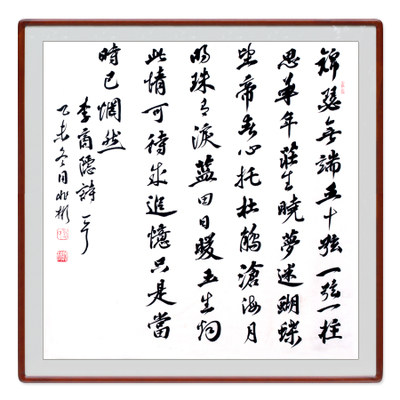 錦瑟無端五十弦一弦一柱
思華年莊生曉夢迷蝴蝶
望帝春心托杜鵑滄海月
明珠有淚藍田日暖玉生烟
此情可待成追憶只是當
時已惘然
李商隱詩一首
冬月